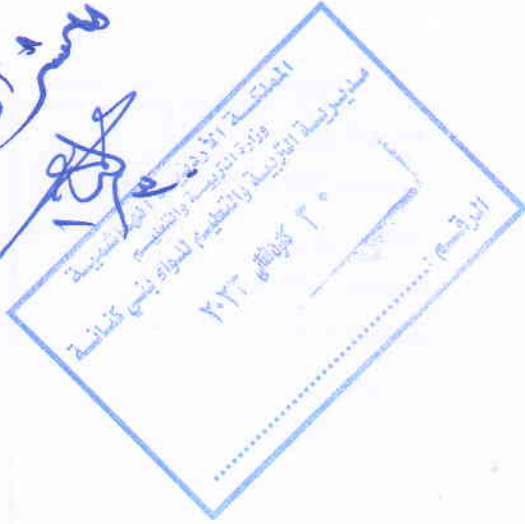 المملكة الأردنية الهاشمية
وزارة التربية والتعليم
مديرية التربية والتعليم للواء بني كنانة
٣٠ كانون الثاني ٢٠٢٣
الرقم : ................................